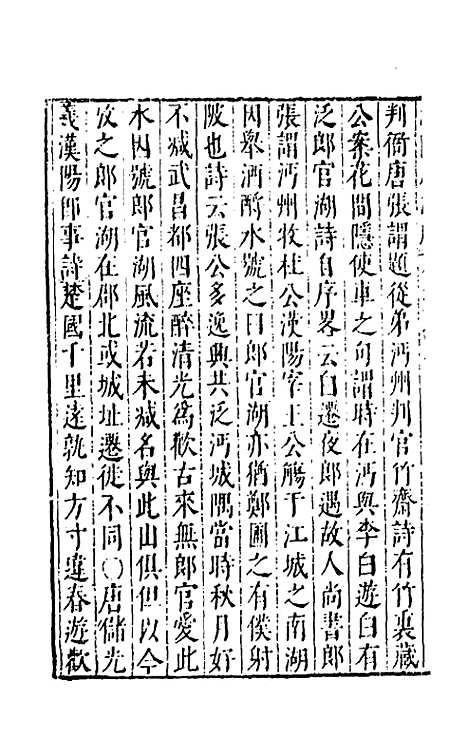 判衙唐張謂題從弟沔州判官竹齋詩有竹裏藏
公案花間隱使車之句謂時在沔與李白遊白有
泛郎官湖詩自序畧云白遷夜郎遇故人尚書郎
張謂沔州牧杜公漢陽宰王公觴于江城之南湖
因舉酒酹水號之曰郎官湖亦猶鄭圃之有僕射
陂也詩云張公多逸興共泛沔城隅當時秋月好
不减武昌都四座醉清光為歡古來無郎官愛此
水因號郎官湖風流若未减名與此山俱但以今
攷之郎官湖在郡北或城址遷徙不同○唐儲光
羲漢陽即事詩楚國千里遠孰知方寸違春遊歡